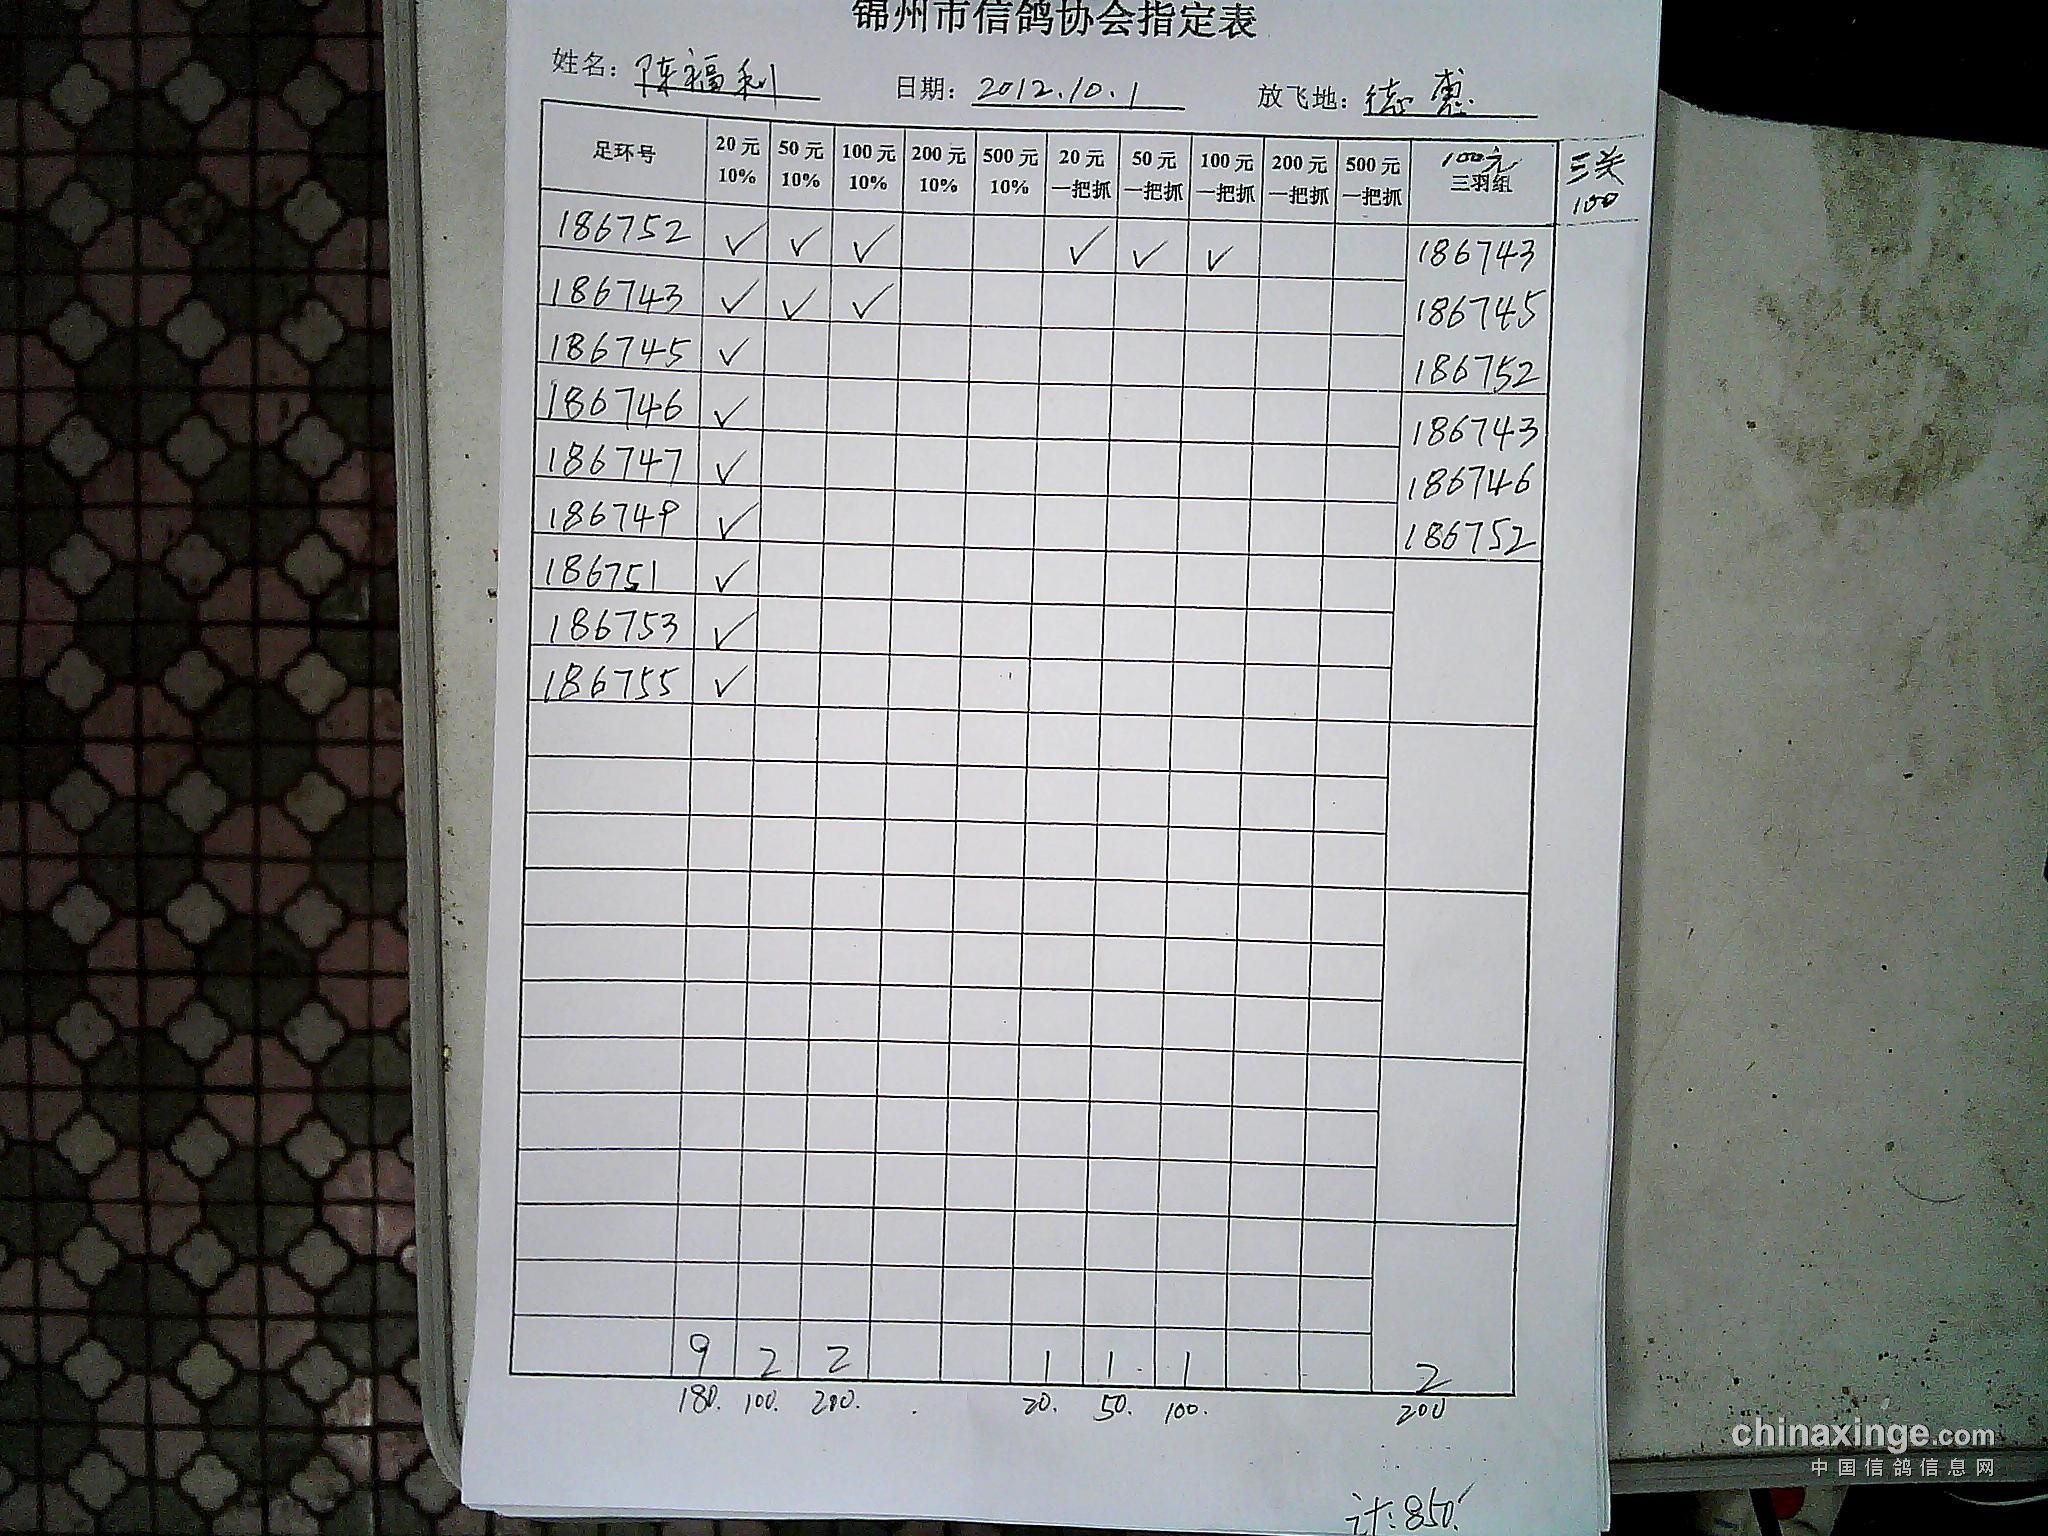 锦州市信鸽协会指定表
姓名：陈福利 日期：2012.10.1 放飞地：德惠
足环号 20元 10% 50元 10% 100元 10% 200元 10% 500元 10% 20元 一把抓 50元 一把抓 100元 一把抓 200元 一把抓 500元 一把抓 100元 三羽组 三关 100
186752 ✓ ✓ ✓ ✓ ✓ ✓ 186743
186743 ✓ ✓ ✓ 186745
186745 ✓ 186752
186746 ✓ 186743
186747 ✓ 186746
186749 ✓ 186752
186751 ✓
186753 ✓
186755 ✓
9 2 2 1 1 1 2
180. 100. 200. 20. 50. 100. 200
计:850.
chinaxinge.com
中国信鸽信息网